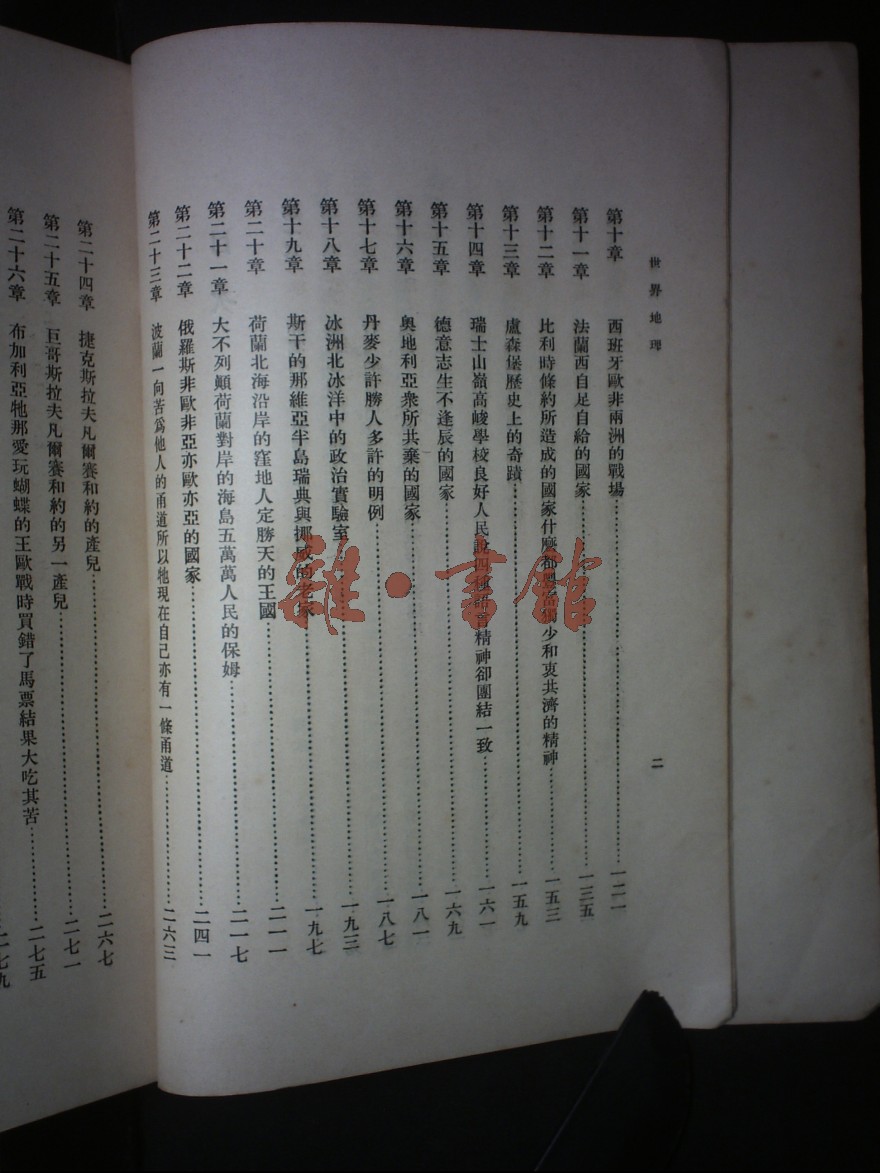 世界地理
二
第十章　西班牙歐非兩洲的戰場……一二一
第十一章　法蘭西自足自給的國家……一三五
第十二章　比利時條約所造成的國家什麼都豐富獨少和衷共濟的精神……一五三
第十三章　盧森堡歷史上的奇蹟……一五九
第十四章　瑞士山嶺高峻學校良好人民說四種語言精神卻團結一致……一六一
第十五章　德意志生不逢辰的國家……一六九
第十六章　奧地利亞衆所共棄的國家……一八一
第十七章　丹麥少許勝人多許的明例……一八七
第十八章　冰洲北冰洋中的政治實驗室……一九三
第十九章　斯干的那維亞半島瑞典與挪威的老家……一九七
第二十章　荷蘭北海沿岸的窪地人定勝天的王國……二一一
第二十一章　大不列顛荷蘭對岸的海島五萬萬人民的保姆……二一七
第二十二章　俄羅斯非歐非亞亦歐亦亞的國家……二四一
第二十三章　波蘭一向苦爲他人的甬道所以牠現在自己亦有一條甬道……二六三
第二十四章　捷克斯拉夫凡爾賽和約的產兒……二六七
第二十五章　巨哥斯拉夫凡爾賽和約的另一產兒……二七一
第二十六章　布加利亞牠那愛玩蝴蝶的王歐戰時買錯了馬票結果大吃其苦……二七五
二七九
雜·書館